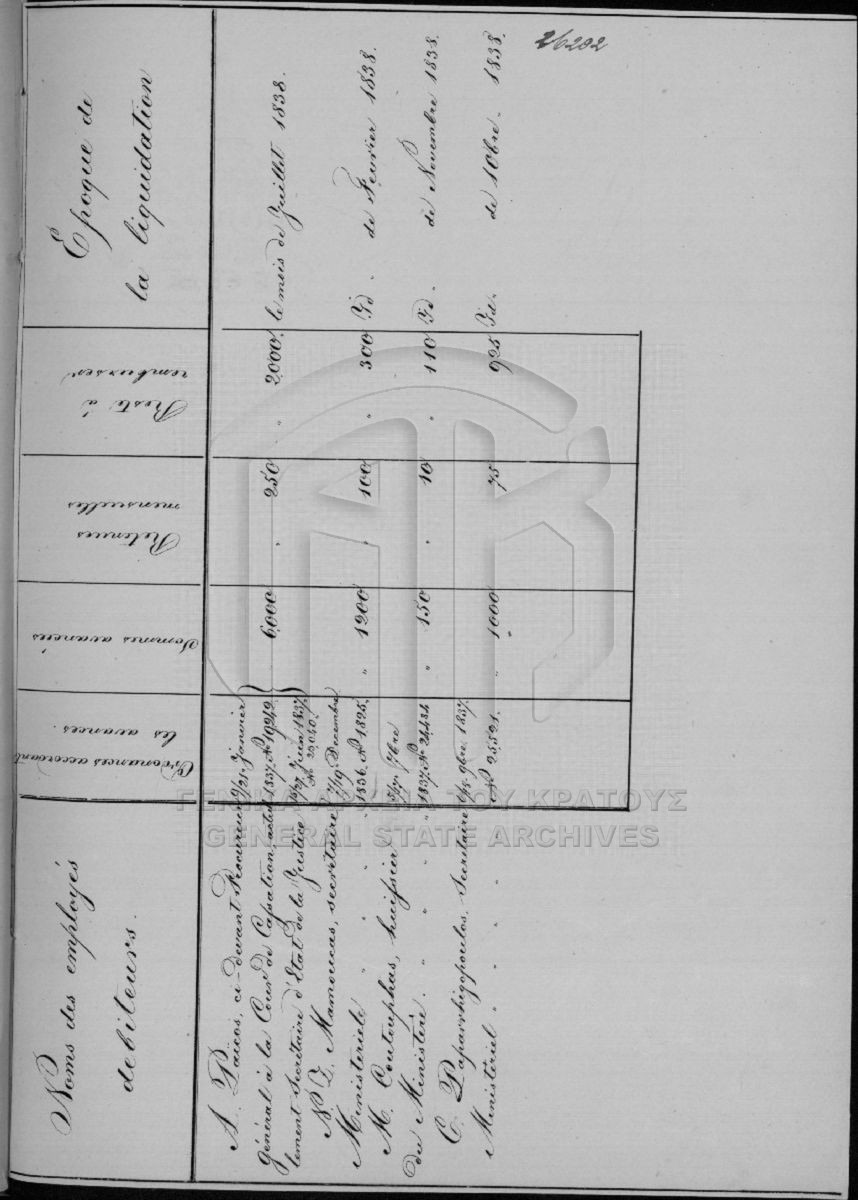 26202
Noms des employés
debiteurs.
Ordonances accordant
les avances.
Sommes avancées
Retenues
mensuelles
Reste à
rembursser
Epoque de
la liquidation
A. Païcos, ci-devant Procureur 9/21 Janvier
général à la Cour de Cassation, actuel 1837. No 19242. " 6000 " 250 " 2000. le mois de Juillet 1838.
lement Secrétaire d'Etat de la Justice 15/27 Juin 1837
No 23040.
N. Z. Mamoucas, secrétaire 7/19 Decembre
Ministeriele " " " 1836. No 1825. " 1200 " 100 " 300 Id. de Fevrier 1838.
M. Coutouphas, huissier 5/17 7bre
du Ministère. " " " 1837. No 24434. " 150 " 10 " 110 Id. de Novembre 1838.
C. Paparrhigopoulos, Secretaire 6/18 9bre 1837.
Ministériel " " " No 25521. " 1000 75 925 Id. de 10bre. 1838.
ΓΕΝΙΚΑ ΑΡΧΕΙΑ ΤΟΥ ΚΡΑΤΟΥΣ
GENERAL STATE ARCHIVES